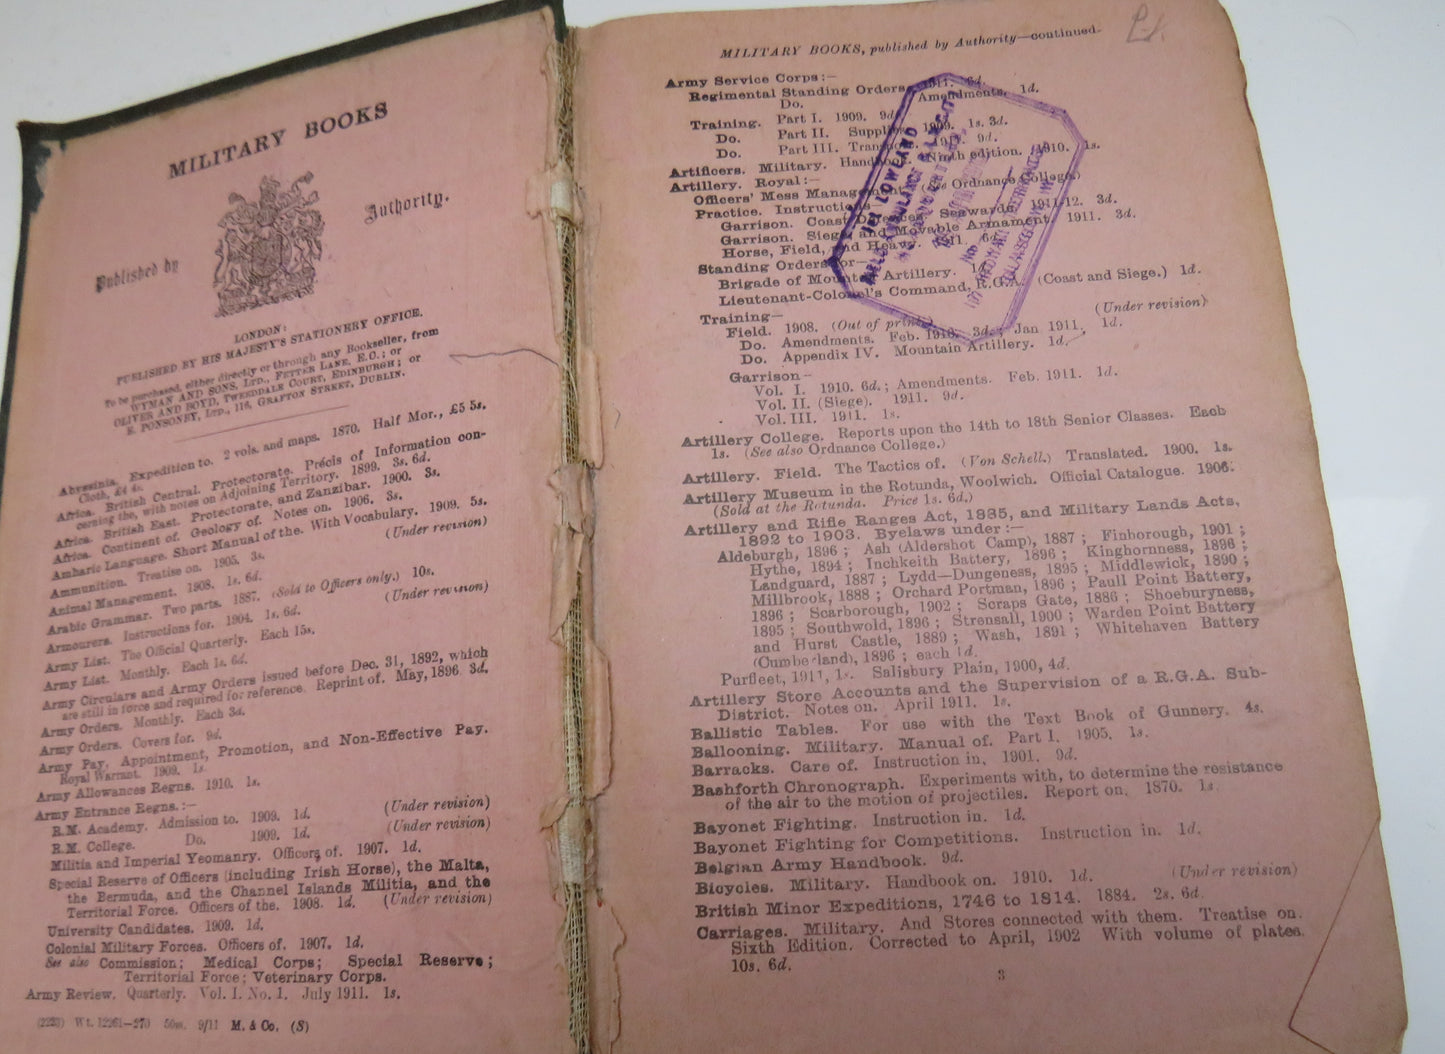 MILITARY BOOKS
Published by Authority.
LONDON:
PUBLISHED BY HIS MAJESTY'S STATIONERY OFFICE.
To be purchased, either directly or through any Bookseller, from
WYMAN AND SONS, LTD., FETTER LANE, E.C.; or
OLIVER AND BOYD, TWEEDDALE COURT, EDINBURGH; or
E. PONSONBY, LTD., 116, GRAFTON STREET, DUBLIN.
Abyssinia. Expedition to. 2 vols. and maps. 1870. Half Mor., £5 5s.
Cloth, £4 4s.
Africa. British Central. Protectorate. Précis of Information con-
cerning the, with notes on Adjoining Territory. 1899. 3s. 6d.
Africa. British East. Protectorate, and Zanzibar. 1900. 3s.
Africa. Continent of. Geology of. Notes on. 1906. 3s.
Amharic Language. Short Manual of the. With Vocabulary. 1909. 5s.
Ammunition. Treatise on. 1905. 3s. (Under revision)
Animal Management. 1908. 1s. 6d.
Arabic Grammar. Two parts. 1887. (Sold to Officers only.) 10s.
Armourers. Instructions for. 1904. 1s. 6d. (Under revision)
Army List. The Official Quarterly. Each 15s.
Army List. Monthly. Each 1s. 6d.
Army Circulars and Army Orders issued before Dec. 31, 1892, which
are still in force and required for reference. Reprint of. May, 1896 3d.
Army Orders. Monthly. Each 3d.
Army Orders. Covers for. 9d.
Army Pay, Appointment, Promotion, and Non-Effective Pay.
Royal Warrant. 1909. 1s.
Army Allowances Regns. 1910. 1s.
Army Entrance Regns.:—
R.M. Academy. Admission to. 1909. 1d. (Under revision)
R.M. College. Do. 1909. 1d. (Under revision)
Militia and Imperial Yeomanry. Officers of. 1907. 1d.
Special Reserve of Officers (including Irish Horse), the Malta,
the Bermuda, and the Channel Islands Militia, and the
Territorial Force. Officers of the. 1908. 1d. (Under revision)
University Candidates. 1909. 1d.
Colonial Military Forces. Officers of. 1907. 1d.
See also Commission; Medical Corps; Special Reserve;
Territorial Force; Veterinary Corps.
Army Review. Quarterly. Vol. I. No. 1. July 1911. 1s.
(2223) Wt. 12261—270 50m. 9/11 M. & Co. (S)
MILITARY BOOKS, published by Authority—continued.
Army Service Corps:—
Regimental Standing Orders. 1911. 6d.
Do. Amendments. 1d.
Training. Part I. 1909. 9d.
Do. Part II. Supplies. 1909. 1s. 3d.
Do. Part III. Transport. 9d.
Artificers. Military. Handbook. Ninth edition. 1910. 1s.
Artillery. Royal:—
Officers' Mess Management. (See Ordnance College.)
Practice. Instructions—
Garrison. Coast Defences, Seawards. 1911-12. 3d.
Garrison. Siege and Movable Armament. 1911. 3d.
Horse, Field, and Heavy. 1911. 6d.
Standing Orders for—
Brigade of Mountain Artillery. 1d.
Lieutenant-Colonel's Command, R.G.A. (Coast and Siege.) 1d.
Training—
Field. 1908. (Out of print) (Under revision)
Do. Amendments. Feb. 1910. 3d.; Jan 1911, 1d.
Do. Appendix IV. Mountain Artillery. 1d.
Garrison—
Vol. I. 1910. 6d.; Amendments. Feb. 1911. 1d.
Vol. II. (Siege). 1911. 9d.
Vol. III. 1911. 1s.
Artillery College. Reports upon the 14th to 18th Senior Classes. Each
1s. (See also Ordnance College.)
Artillery. Field. The Tactics of. (Von Schell.) Translated. 1900. 1s.
Artillery Museum in the Rotunda, Woolwich. Official Catalogue. 1906.
(Sold at the Rotunda. Price 1s. 6d.)
Artillery and Rifle Ranges Act, 1885, and Military Lands Acts,
1892 to 1903. Byelaws under:—
Aldeburgh, 1896; Ash (Aldershot Camp), 1887; Finborough, 1901;
Hythe, 1894; Inchkeith Battery, 1896; Kinghornness, 1896;
Landguard, 1887; Lydd—Dungeness, 1895; Middlewick, 1890;
Millbrook, 1888; Orchard Portman, 1896; Paull Point Battery,
1896; Scarborough, 1902; Scraps Gate, 1886; Shoeburyness,
1895; Southwold, 1896; Strensall, 1900; Warden Point Battery
and Hurst Castle, 1889; Wash, 1891; Whitehaven Battery
(Cumberland), 1896; each 1d.
Purfleet, 1911, 1s. Salisbury Plain, 1900, 4d.
Artillery Store Accounts and the Supervision of a R.G.A. Sub-
District. Notes on. April 1911. 1s.
Ballistic Tables. For use with the Text Book of Gunnery. 4s.
Ballooning. Military. Manual of. Part I. 1905. 1s.
Barracks. Care of. Instruction in. 1901. 9d.
Bashforth Chronograph. Experiments with, to determine the resistance
of the air to the motion of projectiles. Report on. 1870. 1s.
Bayonet Fighting. Instruction in. 1d.
Bayonet Fighting for Competitions. Instruction in. 1d.
Belgian Army Handbook. 9d.
Bicycles. Military. Handbook on. 1910. 1d. (Under revision)
British Minor Expeditions, 1746 to 1814. 1884. 2s. 6d.
Carriages. Military. And Stores connected with them. Treatise on.
Sixth Edition. Corrected to April, 1902 With volume of plates.
10s. 6d.
3
1st LOWLAND
FIELD AMBULANCE R.A.M.C.T.
No.
YORKHILL